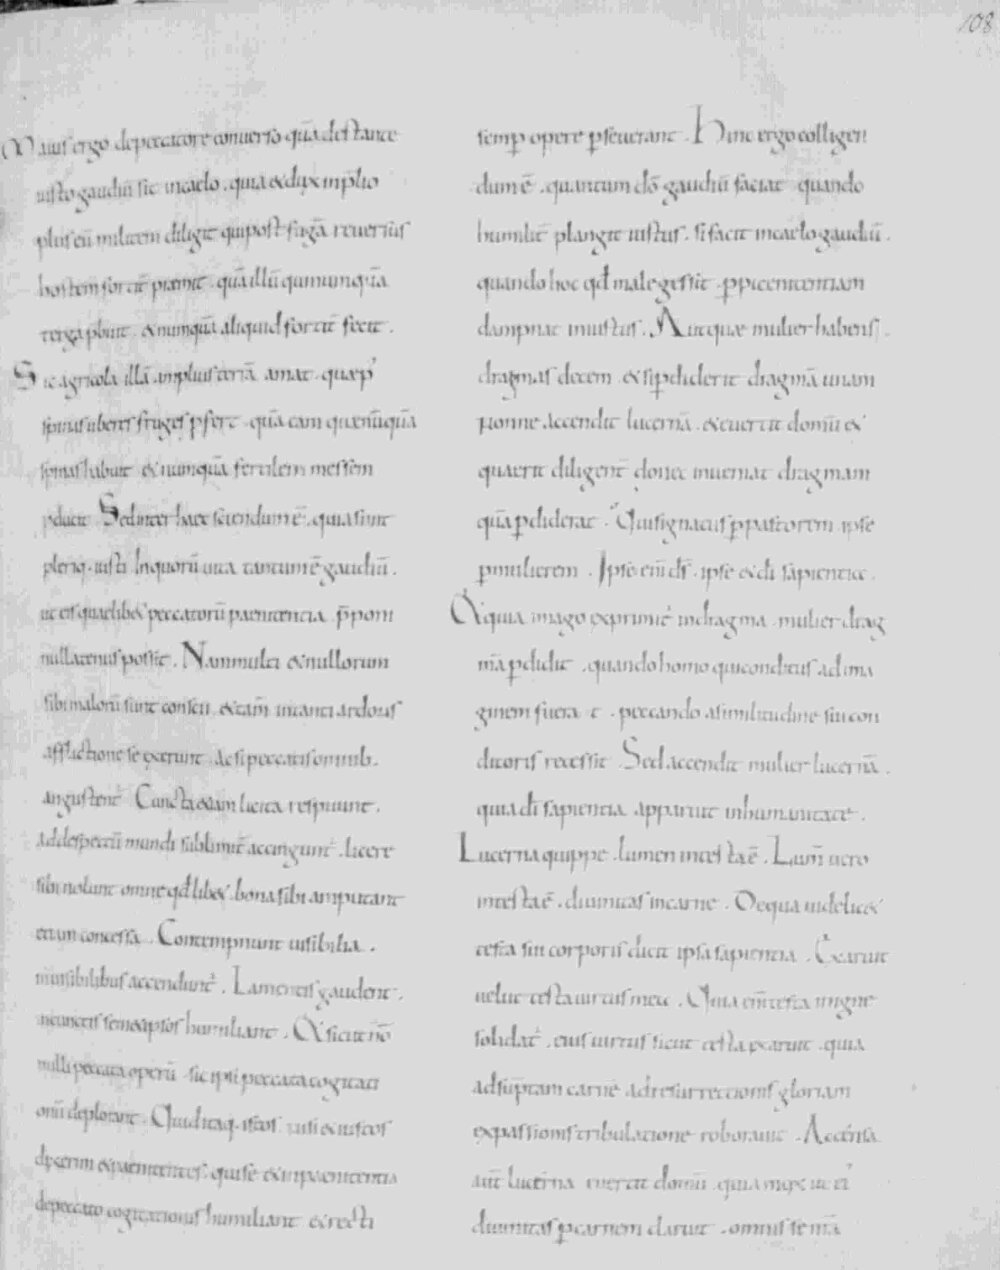 108
Maius ergo depeccatore conuerso quā destante
iusto gaudiū fit incaelo . quia & dux inp̄lio
plus eū militem diligit qui post fugā reuersus
hostem fortit̄ premit . quā illū qui numquā
terga p̄buit . & numquā aliquid fortit̄ fecit .
Sic agricola illā amplius terrā amat . quae p'
spinas uberes fruges pfert . quā eam quae nūquā
spinas habuit & numquā fertilem messem
pducit . Sed inter haec sciendum ē . quia sunt
pleriq . iusti Inquorū uita tantum ē gaudiū .
ut eis quaelib& peccatorū paenitentia p̄poni
nullatenus possit . Nam multi & nullorum
sibi malorū sunt conscii . & tam̄ intanti ardoris
afflictione se exerunt . ac si peccatis omnib .
angustent' Cuncta etiam licita respuunt .
addespectū mundi sublimit̄ accingunt' . licere
sibi nolunt omne qd̄ lib& . bona sibi amputant
etiam concessa . Contempnunt uisibilia .
inuisibilibus accendunt' . Lamentis gaudent .
incunctis semeipsos humiliant . & sicut nō
nulli peccata operū sic ipsi peccata cogitati
onū deplorant . Quid itaq . istos nisi & iustos
dixerim & paenitentes . qui se & inpaenitentia
depeccato cogitationis humiliant & recti
semp opere pseuerant . Hinc ergo colligen
dum ē . quantum dō gaudiū faciat quando
humilit̄ plangit iustus . si facit incaelo gaudiū .
quando hoc qd̄ male gessit ppaenitentiam
dampnat iniustus . Aut quae mulier habens
dragmas decem & si pdiderit dragmā unam
nonne accendit lucernā & euertit domū &
quaerit diligent̄ donec inueniat dragmam
quā pdiderat . Qui signatus ppastorem ipse
pmulierem . Ipse eni ds . ipse & di sapientia .
& quia imago exprimit' indragma . mulier drag
mā pdidit . quando homo qui conditus ad ima
ginem fuerat . peccando asimilitudine sui con
ditoris recessit Sed accendit mulier lucernā .
quia dī sapientia apparuit inhumanitate .
Lucerna quippe . lumen intesta ē . Lum̄ uero
intesta ē . diuinitas incarne . De qua uidelic&
testa sui corporis dicit ipsa sapientia . Exaruit
uelut testa uirtus mea . Quia eni testa inigne
solidat' . eius uirtus sicut testa exaruit . quia
adsūptam carnē ad resurrectionis gloriam
expassionis tribulatione roborauit . Accensa
aūt lucerna euertit domū . quia mox ut ei'
diuinitas pcarnem claruit . omnis se nrā